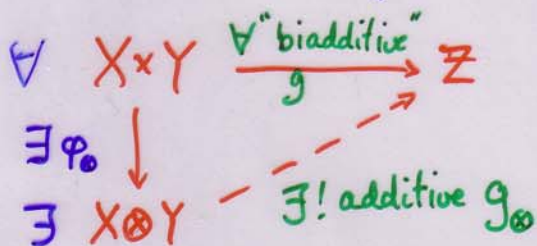 ∀ X×Y ∀"biadditive" g Z
∃φ⊗
∃ X⊗Y ∃! additive g⊗